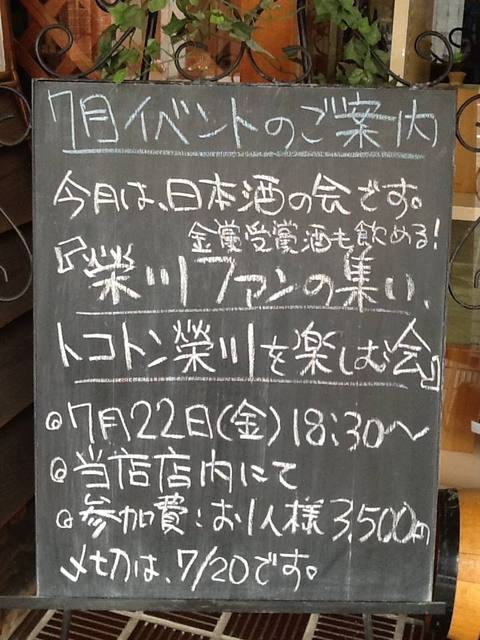 7月イベントのご案内
今月は、日本酒の会です。
金賞受賞酒も飲める!
『榮川ファンの集い、
トコトン榮川を楽しむ会』
◎7月22日(金)18:30〜
◎当店店内にて
◎参加費:お1人様3,500円
〆切は、7/20です。